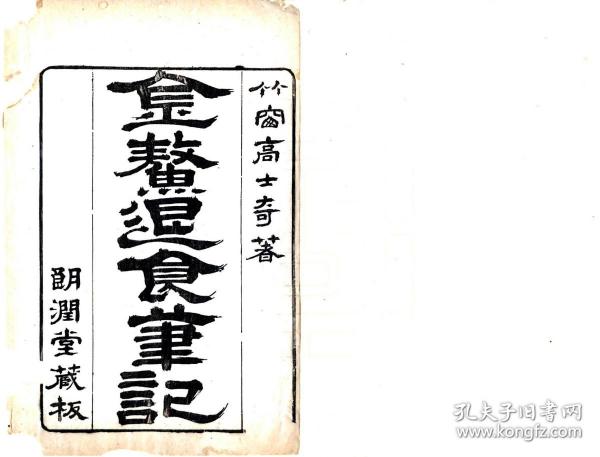 竹窗高士奇著
金鰲退食筆記
朗潤堂藏板
孔夫子旧书网
www.kongfz.com